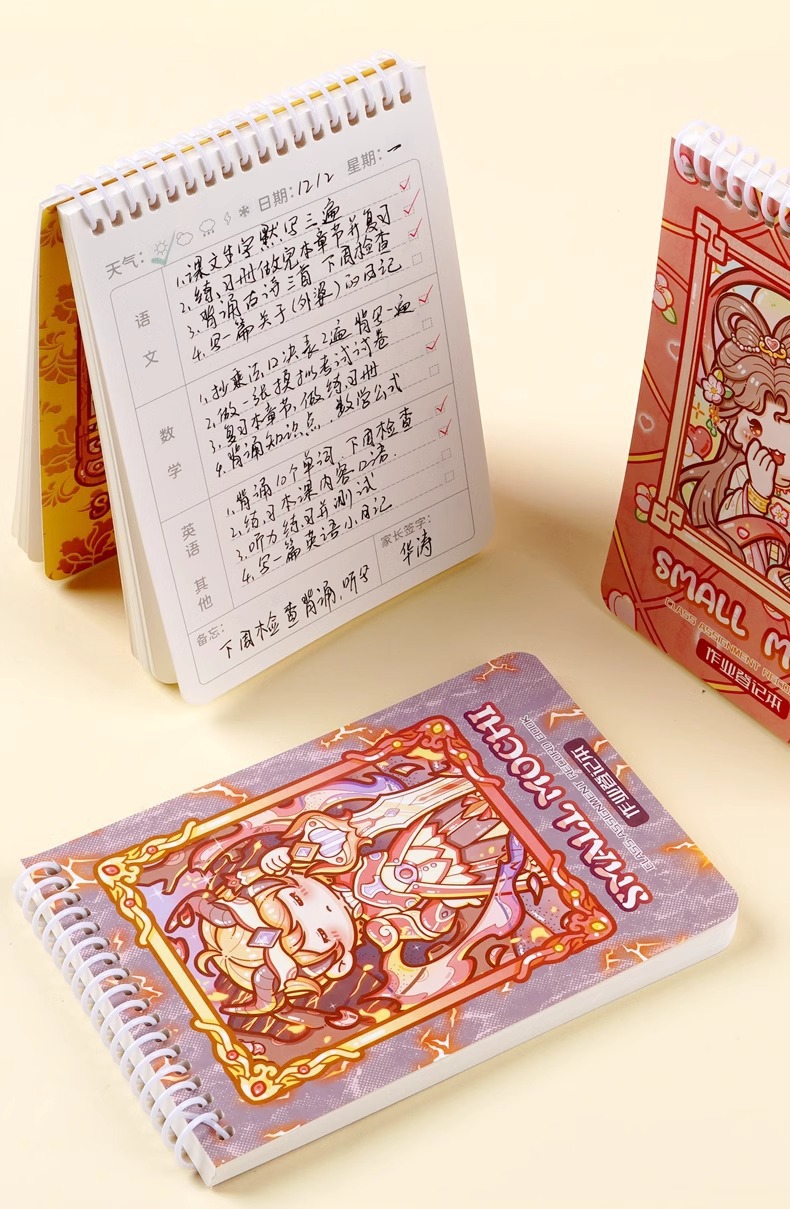 天气: 日期:12/2 星期:一
语文
1.课文生字默写三遍
2.练习册做完本章节并复习
3.背诵古诗三首 下周检查
4.写一篇关于(外婆)的日记
数学
1.抄乘法口决表2遍 背写一遍
2.做一张模拟考试试卷
3.复习本章节,做练习册
4.背诵知识点,数学公式
英语 其他
1.背诵10个单词,下周检查
2.练习本课内容口语.
3.听力练习并测试
4.写一篇英语小日记
备忘:
下周检查背诵,听写
家长签字:
华涛
SMALL M
CLASS ASSIGNMENT RECO
作业登记本
SMALL MOCHI
CLASS ASSIGNMENT RECORD BOOK
作业登记本